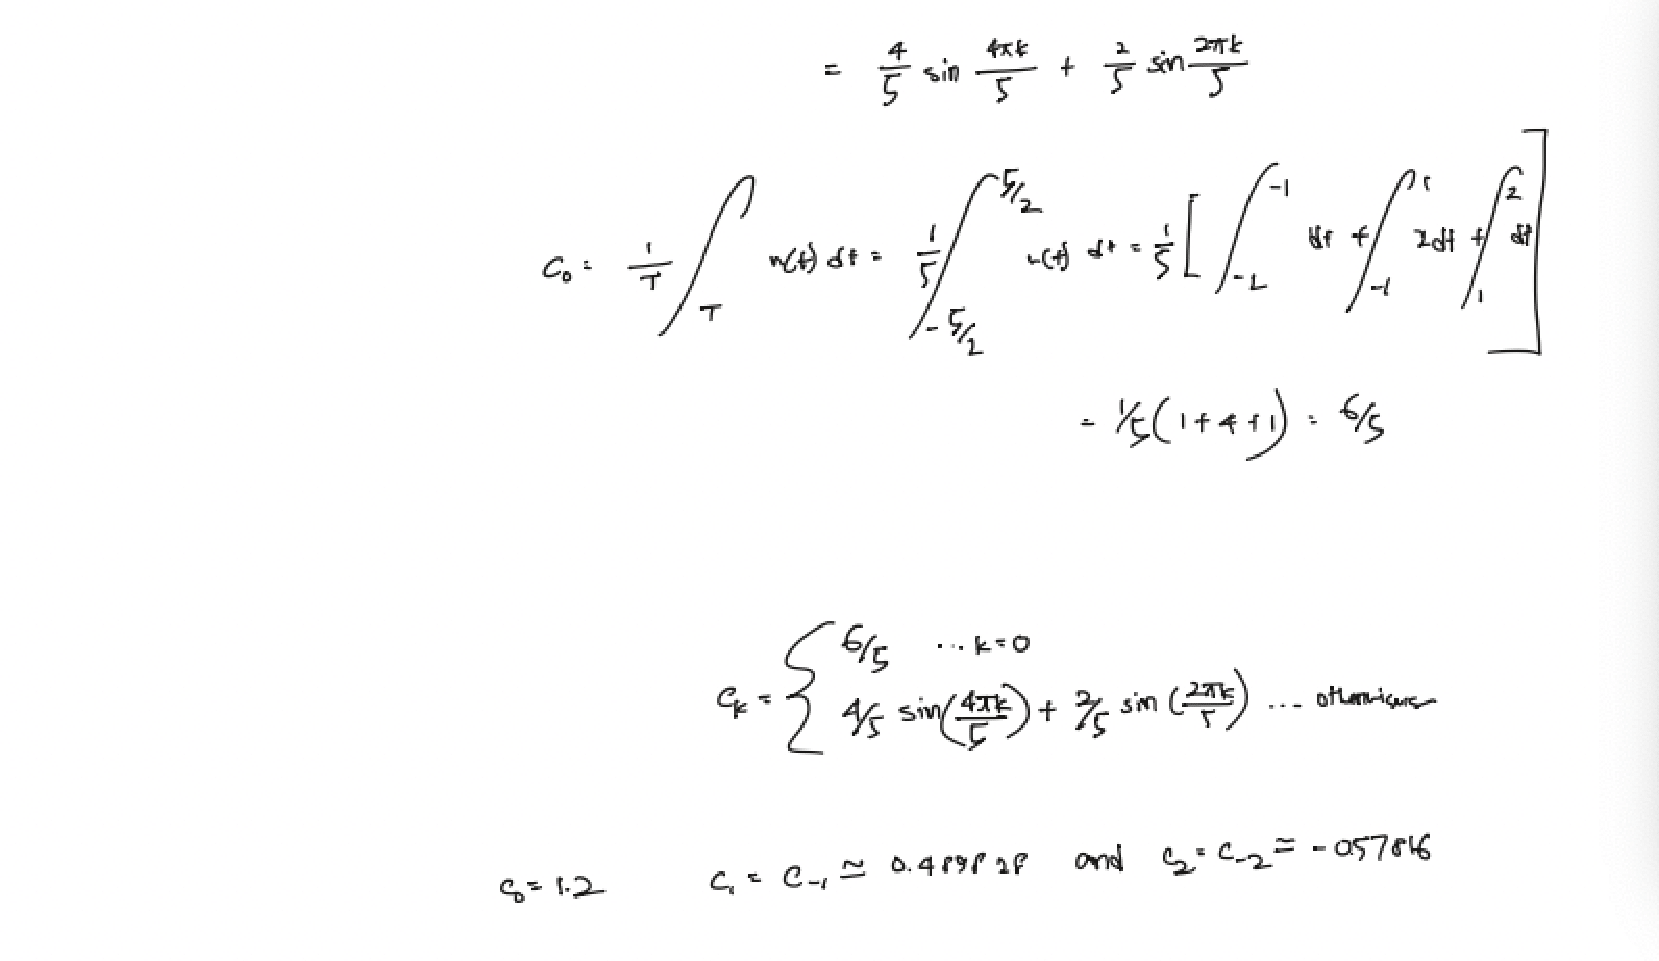 = 4/5 sin 4πk/5 + 2/5 sin 2πk/5
C₀ = 1/T ∫_T x(t) dt = 1/5 ∫_{-5/2}^{5/2} x(t) dt = 1/5 [ ∫_{-2}^{-1} dt + ∫_{-1}^{1} 2dt + ∫_{1}^{2} dt ]
= 1/5 (1+4+1) = 6/5
C_k = { 6/5 ... k=0
4/5 sin(4πk/5) + 2/5 sin (2πk/5) ... otherwise
C₀ = 1.2 C₁ = C₋₁ ≃ and C₂ = C₋₂ ≃